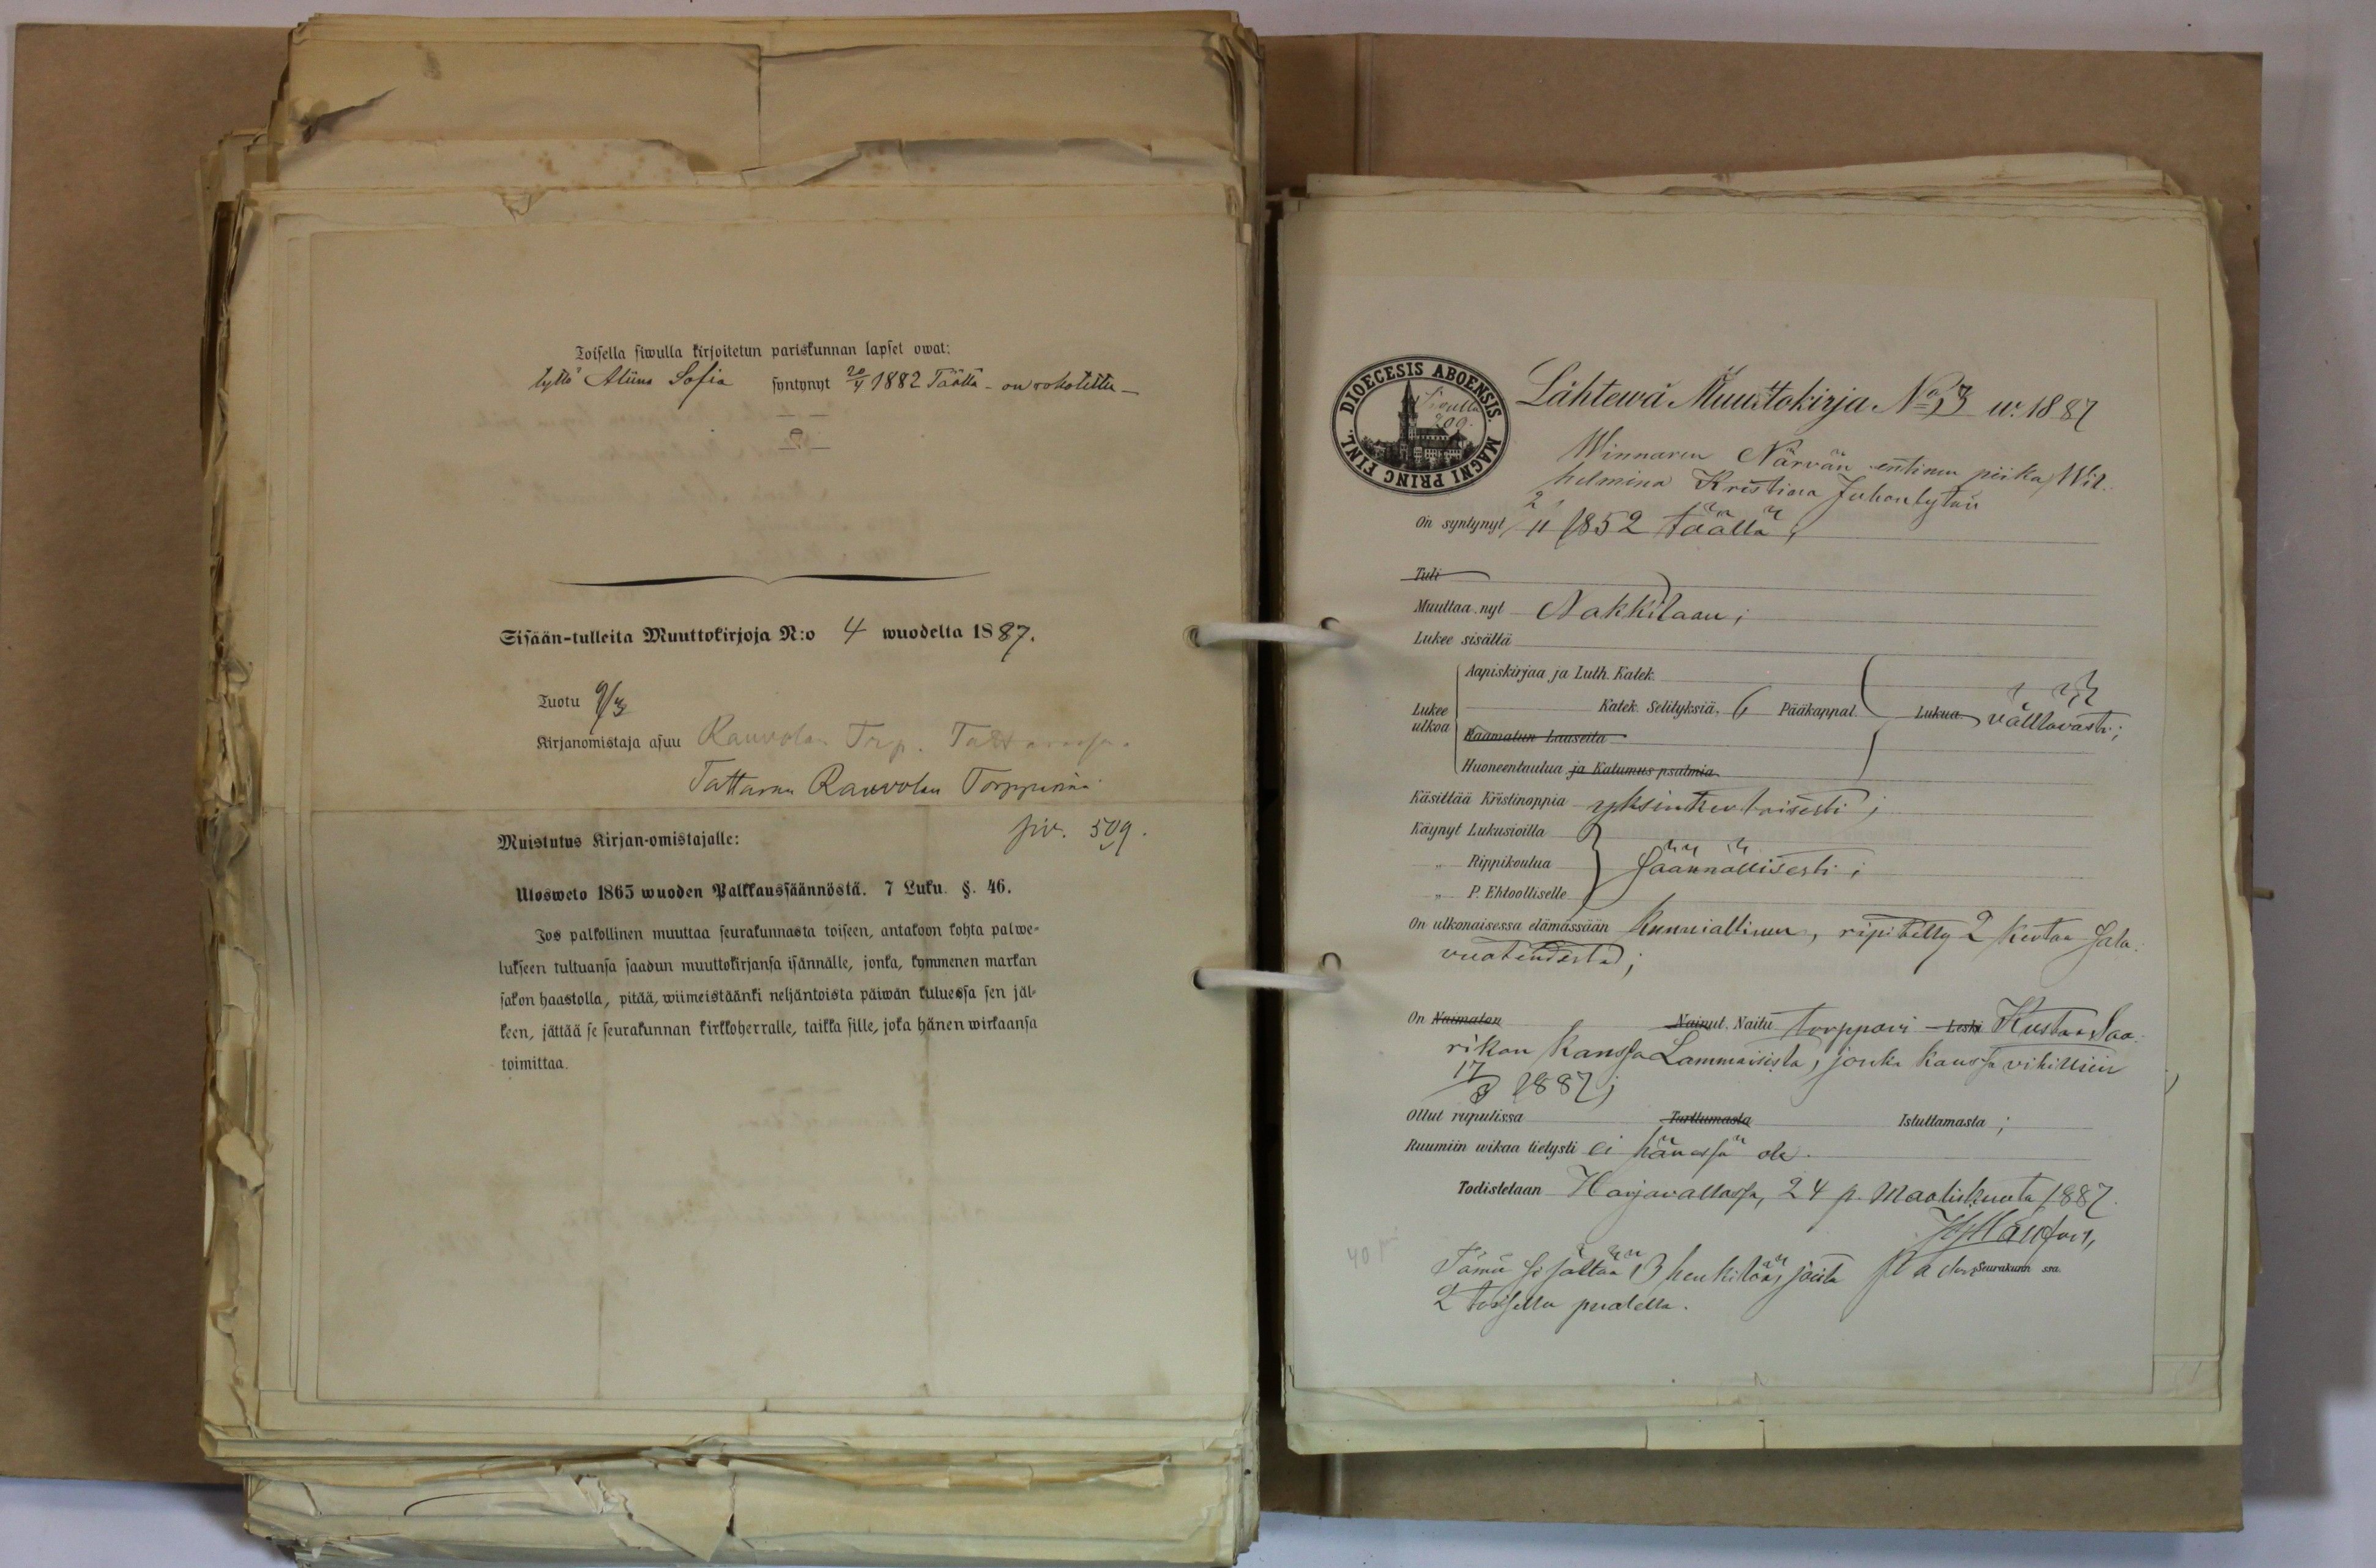 Toisella siwulla kirjoitetun pariskunnan lapset owat:
tyttö Aliina Sofia syntynyt 20/4 1882 Täällä - on rokotettu -
Sisään-tulleita Muuttokirjoja N:o 4 wuodelta 1887.
Tuotu 9/3
Kirjanomistaja asuu Rauvolan Trp. Tattarassa.
Tattaran Rauvolan Torpparina
siv. 509.
Muistutus Kirjan-omistajalle:
Ulosweto 1865 wuoden Palkkaussäännöstä. 7 Luku. §. 46.
Jos palkollinen muuttaa seurakunnasta toiseen, antakoon kohta palwe-
lukseen tultuansa saadun muuttokirjansa isännälle, jonka, kymmenen markan
sakon haastolla, pitää, wiimeistäänki neljäntoista päiwän kuluessa sen jäl-
keen, jättää se seurakunnan kirkkoherralle, taikka sille, joka hänen wirkaansa
toimittaa.
DIOECESIS ABOENSIS. MAGNI PRINC FINL.
Sivulla
209.
Lähtewä Muuttokirja No 13 w. 1887
Winnaren Närvän entinen piika, Wil-
helmina Kristina Juhontytär
On syntynyt 2/11 1852 täällä;
Tuli
Muuttaa nyt Nakkilaan;
Lukee sisältä
Aapiskirjaa ja Luth. Katek.
Lukee ulkoa Katek. Selityksiä, 6 Pääkappal. Lukua välttävästi;
Raamatun Lauseita
Huoneentaulua ja Katumus psalmia
Käsittää Kristinoppia yksinkertaisesti;
Käynyt Lukusioilla
„ Rippikoulua säännöllisesti;
„ P. Ehtoolliselle
On ulkonaisessa elämässään kunniallinen, ripitetty 2 kertaa sala-
vuoteudesta;
On Naimaton Nainut. Naitu torppari Leski Kustaa Saa-
rikon kanssa Lammaisista, jonka kanssa vihittiin
17/3 1887;
Ollut rupulissa Tarttumasta Istuttamasta;
Ruumiin wikaa tietysti ei hänessä ole.
Todistetaan Harjavallassa, 24 p. Maaliskuuta 1887.
Seurakunn ssa.
Tämä sisältää 3 henkilöä, joita
2 toisella puolella.
40 pi